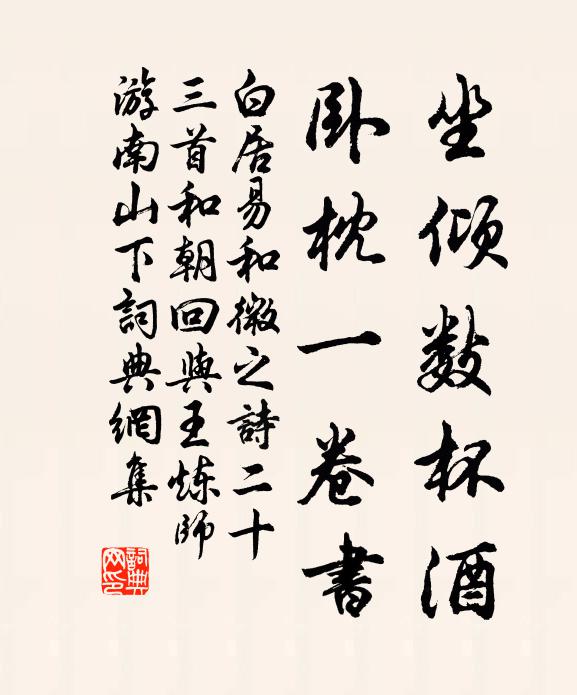 坐傾數杯酒
臥枕一卷書
白居易和微之詩二十
三首和朝回與王炼師
游南山下詞典網集
詞典網印